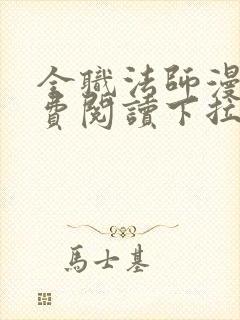 全職法師漫
費閱讀下拉
馬士基